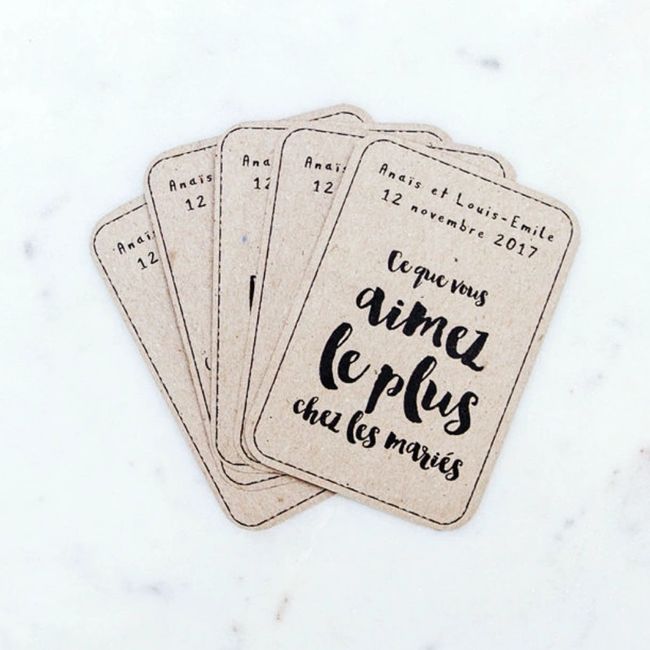 Anaïs
12
Anaïs
12
Ana
12
Anaïs
12
Anaïs et Louis-Emile
12 novembre 2017
Ce que vous
aimez
le plus
chez les mariés